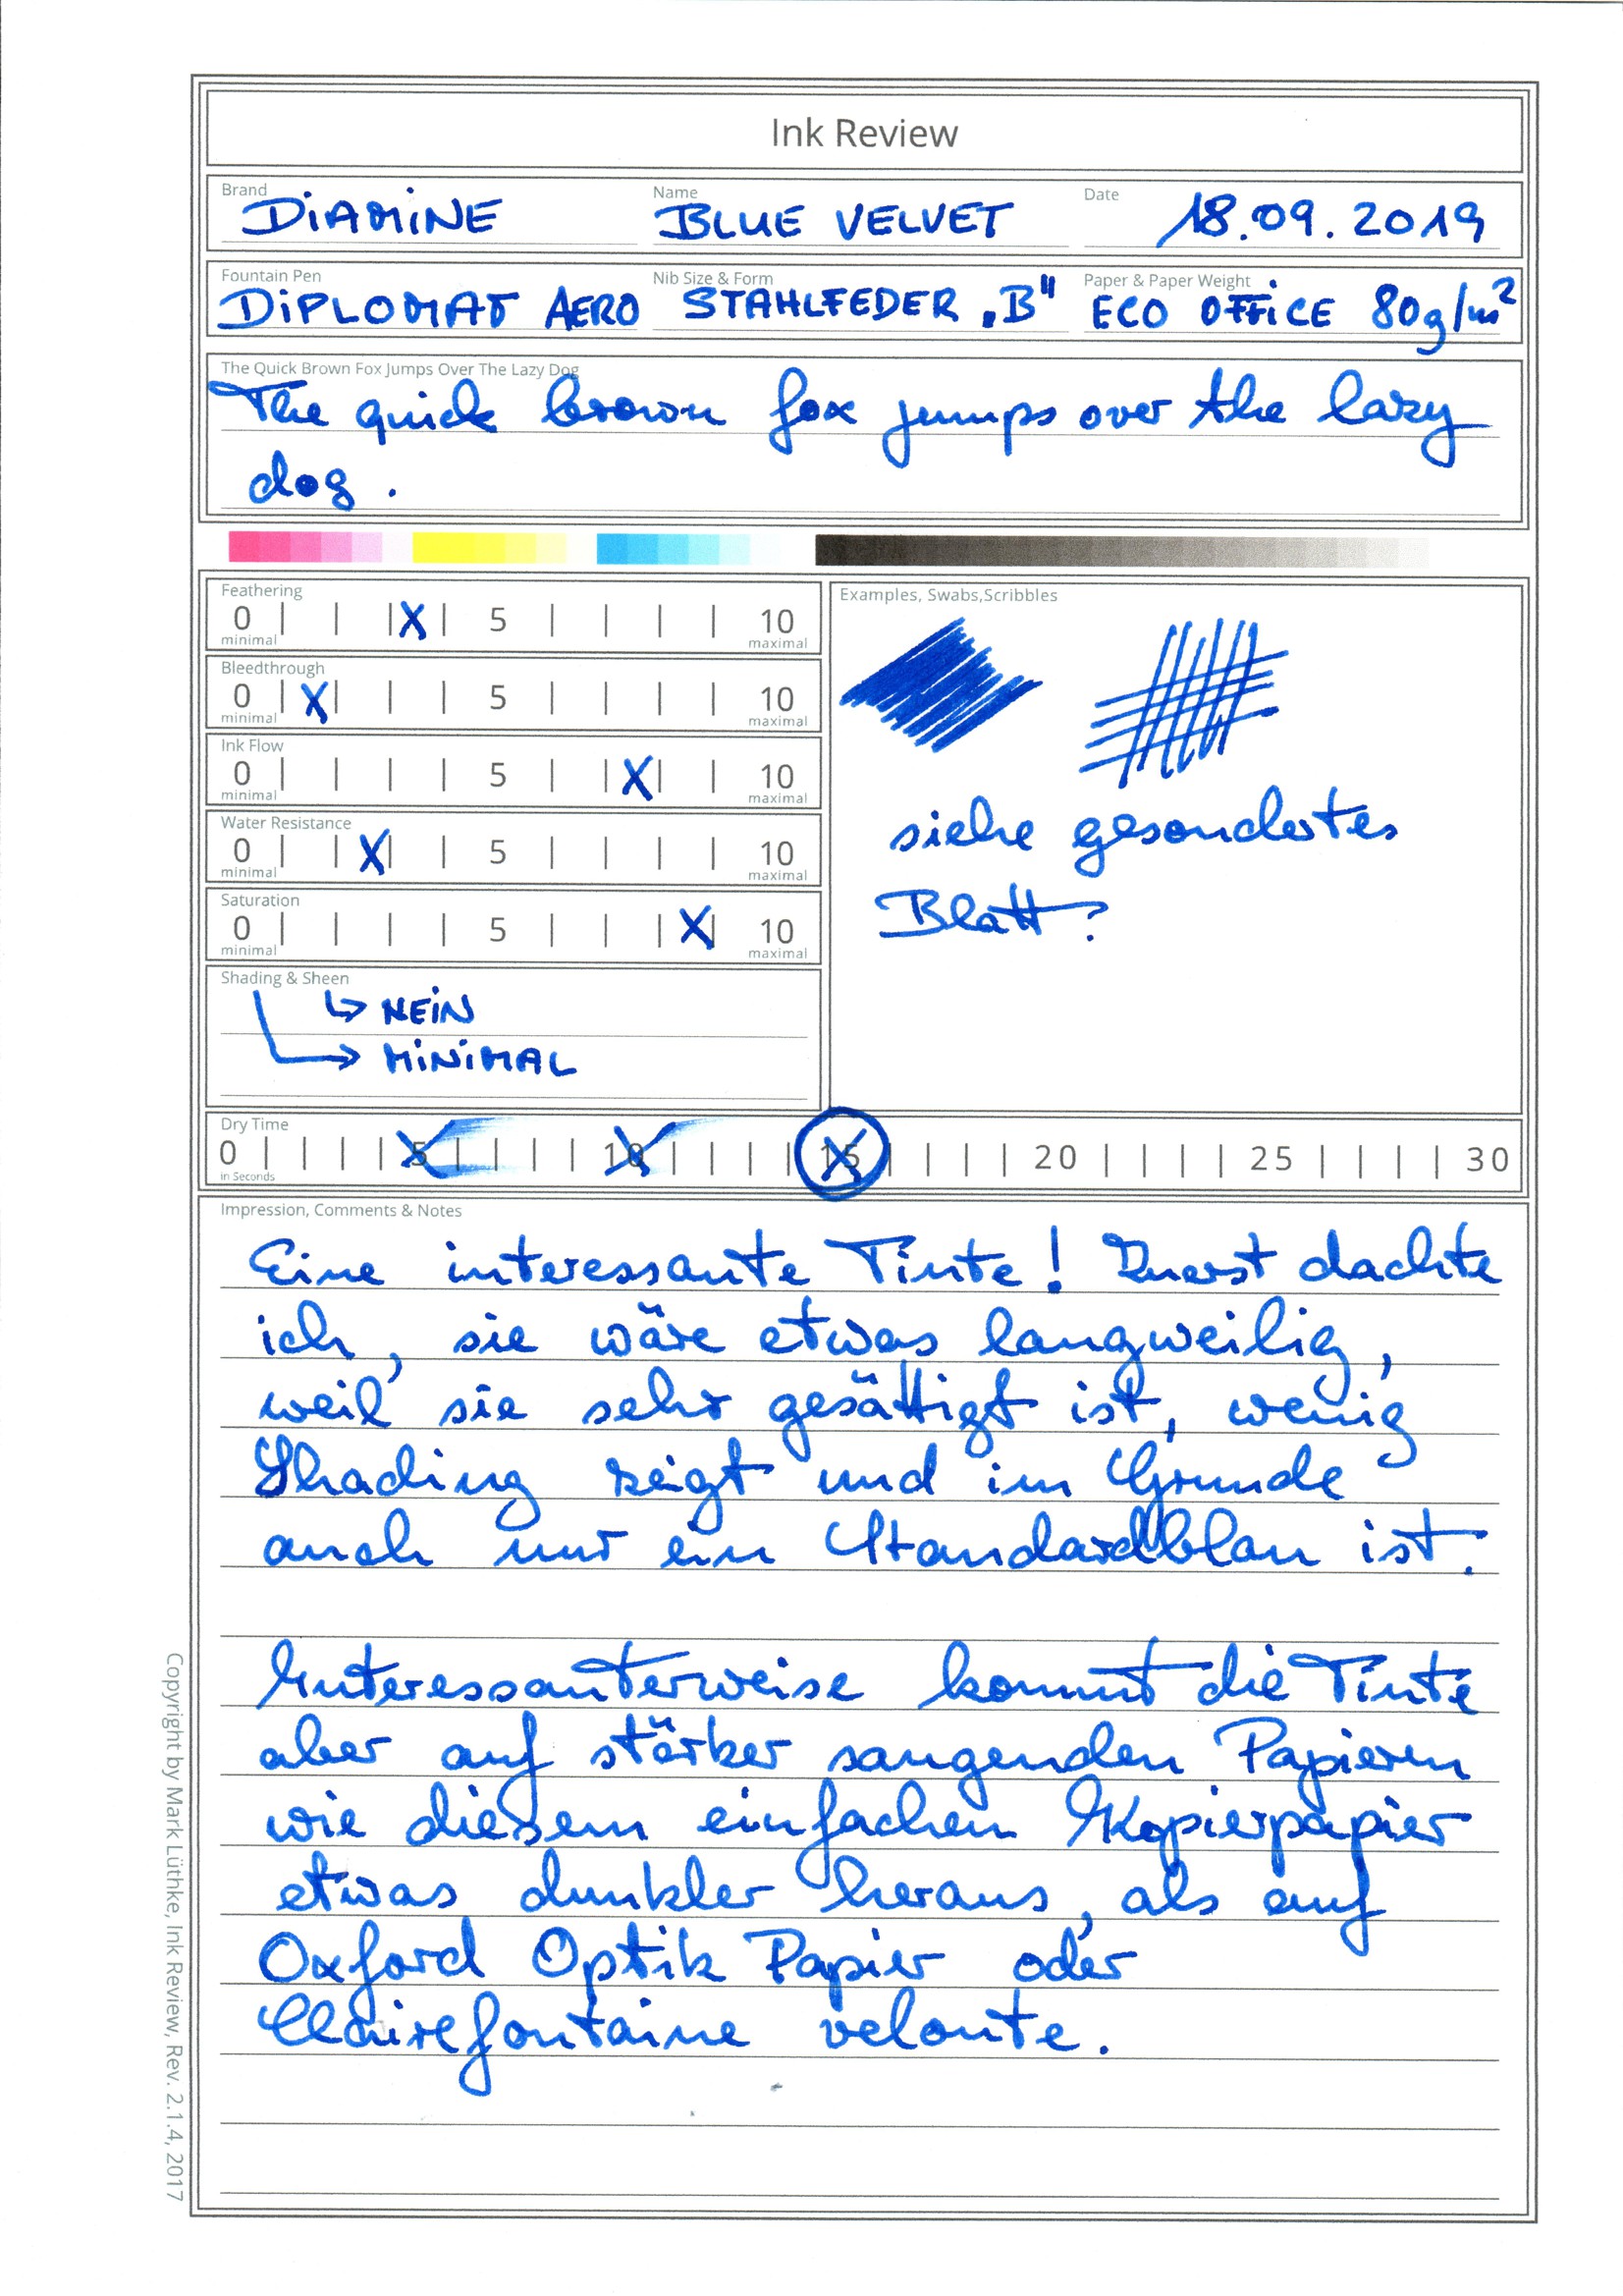 Ink Review
Brand Name Date
DiAMiNE BLUE VELVET 18.09.2019
Fountain Pen Nib Size & Form Paper & Paper Weight
DiPLOMAT AERO STAHLFEDER „B“ ECO OFFiCE 80g/m²
The Quick Brown Fox Jumps Over The Lazy Dog
The quick brown fox jumps over the lazy
dog.
Feathering
0 | | | X | 5 | | | | 10
minimal maximal
Bleedthrough
0 | X | | | 5 | | | | 10
minimal maximal
Ink Flow
0 | | | | 5 | | X | | 10
minimal maximal
Water Resistance
0 | | X | | 5 | | | | 10
minimal maximal
Saturation
0 | | | | 5 | | | X | 10
minimal maximal
Shading & Sheen
↳ NEiN
→ MiNiMAL
Examples, Swabs,Scribbles
siehe gesondertes
Blatt?
Dry Time
0 | | | | 5 | | | | 10 | | | | 15 | | | | 20 | | | | 25 | | | | 30
in Seconds
Impression, Comments & Notes
Eine interessante Tinte! Zuerst dachte
ich, sie wäre etwas langweilig,
weil sie sehr gesättigt ist, wenig
Shading zeigt und im Grunde
auch nur ein Standardblau ist.
Interessanterweise kommt die Tinte
aber auf stärker saugenden Papieren
wie diesem einfachen Kopierpapier
etwas dunkler heraus, als auf
Oxford Optik Papier oder
Clairefontaine veloute.
Copyright by Mark Lüthke, Ink Review, Rev. 2.1.4, 2017